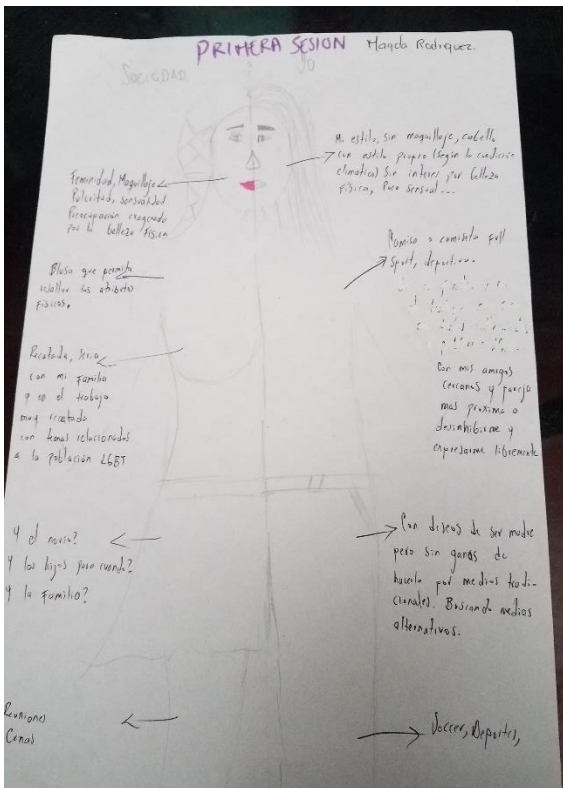 PRIMERA SESION Magda Rodriguez.
SOCIEDAD
yo
Feminidad, Maquillaje
Pulcritud, sensualidad
Preocupación exagerada
por la belleza física
Blusa que permita
resaltar sus atributos
físicos.
Recatada, seria
con mi familia
y en el trabajo
muy recatada
con temas relacionados
a la población LGBT
Y el novio?
Y los hijos para cuando?
Y la familia?
Reuniones
Cenas
Mi estilo, sin maquillaje, cabello
con estilo propio (según la condición
climatica) Sin interes por belleza
física, Poco sensual...
Camisa o camiseta full
sport, deportiva.
Con mis amigos
cercanos y pareja
mas proxima a
desinhibirme y
expresarme libremente
Con deseos de ser madre
pero sin ganas de
hacerlo por medios tradi-
cionales. Buscando medios
alternativos.
Soccer, Deportes,